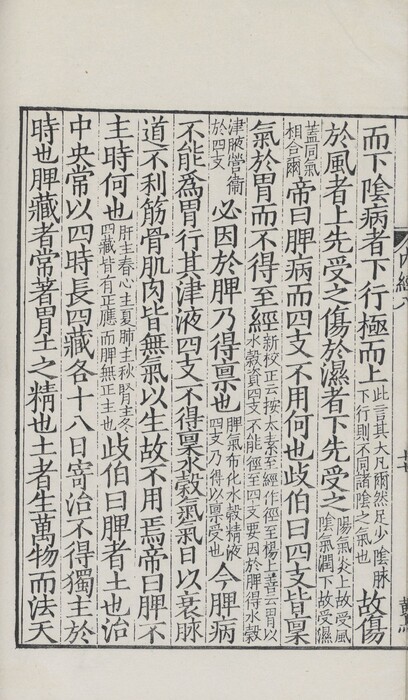 而下陰病者下行極而上此言其大凡爾然足少陰脉下行則不同諸陰之氣也故傷
於風者上先受之傷於濕者下先受之陽氣炎上故受風陰氣潤下故受濕
蓋同氣相合爾帝曰脾病而四支不用何也歧伯曰四支皆稟
氣於胃而不得至經新校正云按太素至經作徑至楊上善云胃以水穀資四支不能徑至四支要因於脾得水穀
津液營衛於四支必因於脾乃得稟也脾氣布化水穀精液四支乃得以稟受也今脾病
不能爲胃行其津液四支不得稟水穀氣氣日以衰脉
道不利筋骨肌肉皆無氣以生故不用焉帝曰脾不
主時何也肝主春心主夏肺主秋腎主冬四藏皆有正應而脾無正主也歧伯曰脾者土也治
中央常以四時長四藏各十八日寄治不得獨主於
時也脾藏者常著胃土之精也土者生萬物而法天
内經八